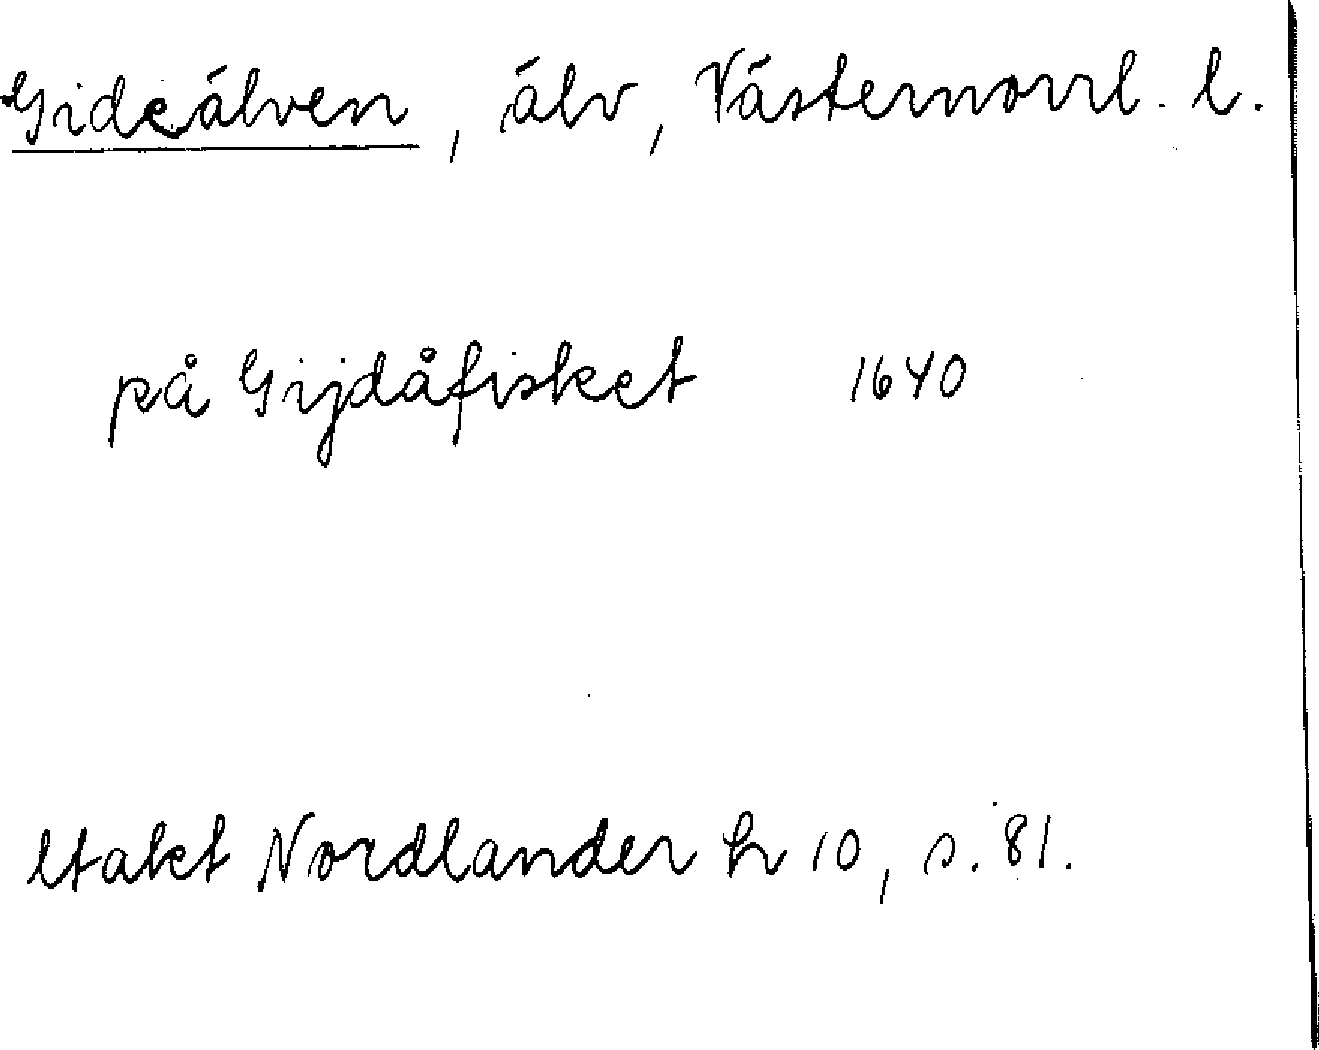 Gideälven, älv, Västernorrl. l.
på Gijdåfisket 1640
Utakt Nordlander h 10, s. 81.